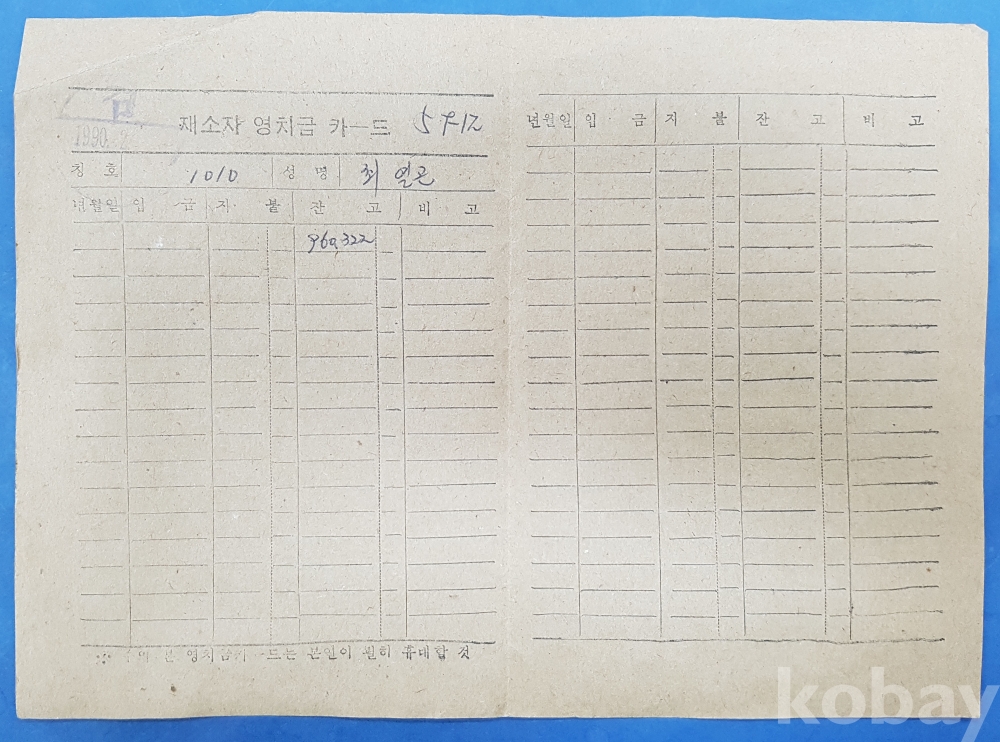 1990.
재소자 영치금 카ー드 5 9-12
칭 호 1010 성 명 최 열곤
년월일 입 금 지 불 잔 고 비 고
960,322
※ 본 영치금카ー드는 본인이 필히 휴대할 것
년월일 입 금 지 불 잔 고 비 고
kobay